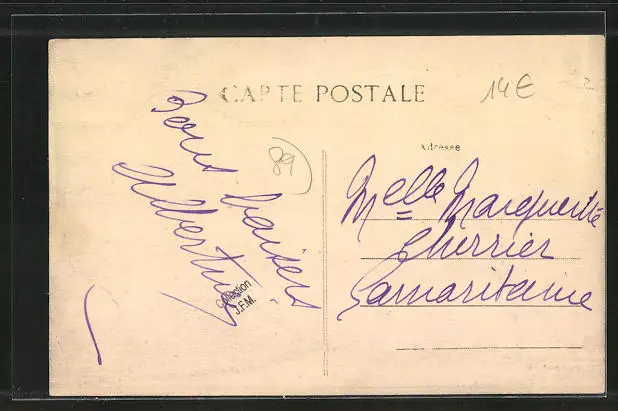 CARTE POSTALE
14€
89
Adresse
Bons baisers
Albertine
Melle Marguerite
Cherrier
Samaritaine
Collection
J.F.M.